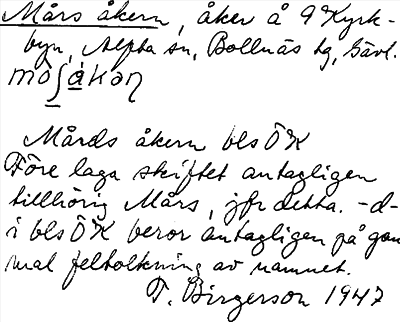 Mårs åkern, åker å 9 Kyrk-
byn, Alfta sn, Bollnäs tg, Gävl.
mōʃákəṇ
Mårds åkern bls ÖK
Före laga skiftet antagligen
tillhörig Mårs, jfr detta. -d-
i bls ÖK beror antagligen på gam
mal feltolkning av namnet.
T. Birgerson 1947